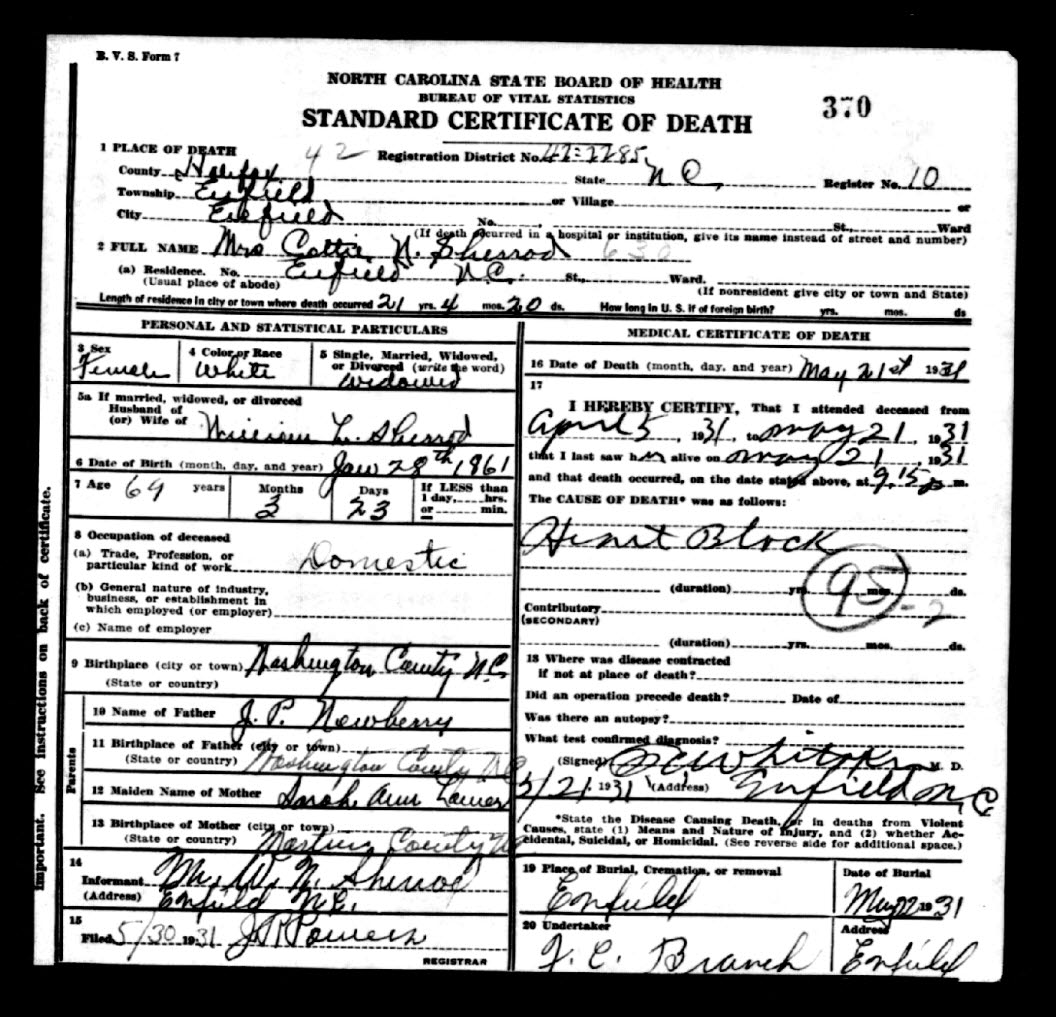 B. V. S. Form 7
NORTH CAROLINA STATE BOARD OF HEALTH
BUREAU OF VITAL STATISTICS
STANDARD CERTIFICATE OF DEATH
370
1 PLACE OF DEATH 42 Registration District No. 42-7785
County Halifax State N C, Register No. 10
Township Enfield or Village or
City Enfield No. St., Ward
(If death occurred in a hospital or institution, give its name instead of street and number)
2 FULL NAME Mrs Cottie N. Sherrod 630
(a) Residence. No. Enfield N.C. St., Ward.
(Usual place of abode) (If nonresident give city or town and State)
Length of residence in city or town where death occurred 21 yrs. 4 mos. 20 ds. How long in U. S. if of foreign birth? yrs. mos. ds
PERSONAL AND STATISTICAL PARTICULARS
3 Sex
Female
4 Color or Race
White
5 Single, Married, Widowed,
or Divorced (write the word)
Widowed
5a If married, widowed, or divorced
Husband of
(or) Wife of L. Sherrod
6 Date of Birth (month, day, and year) Jan 28th 1861
7 Age 69 years Months 3 Days 23 If LESS than
1 day, hrs.
or min.
8 Occupation of deceased
(a) Trade, Profession, or
particular kind of work Domestic
(b) General nature of industry,
business, or establishment in
which employed (or employer)
(c) Name of employer
9 Birthplace (city or town) Washington County N.C.
(State or country)
Parents
10 Name of Father J. P. Newberry
11 Birthplace of Father (city or town)
(State or country) Washington County N C
12 Maiden Name of Mother Sarah Ann
13 Birthplace of Mother (city or town)
(State or country) County N C
14
Informant W. N. Sherrod
(Address) Enfield N.C.
15
Filed 5/30 1931 J R Powers
REGISTRAR
MEDICAL CERTIFICATE OF DEATH
16 Date of Death (month, day, and year) May 21st 1931
17
I HEREBY CERTIFY, That I attended deceased from
April 5, 1931, to May 21, 1931
that I last saw her alive on May 21, 1931
and that death occurred, on the date stated above, at 9.15 p m.
The CAUSE OF DEATH* was as follows:
Heart Block
(duration) yrs. mos. ds.
95-2
Contributory
(SECONDARY)
(duration) yrs. mos. ds.
18 Where was disease contracted
if not at place of death?
Did an operation precede death? Date of
Was there an autopsy?
What test confirmed diagnosis?
(Signed) Whitaker M. D.
5/21, 1931 (Address) Enfield N, C
*State the Disease Causing Death, or in deaths from Violent
Causes, state (1) Means and Nature of Injury, and (2) whether Ac-
cidental, Suicidal, or Homicidal. (See reverse side for additional space.)
19 Place of Burial, Cremation, or removal
Enfield
Date of Burial
May 22 1931
20 Undertaker
F. C. Branch
Address
Enfield
Important. See instructions on back of certificate.